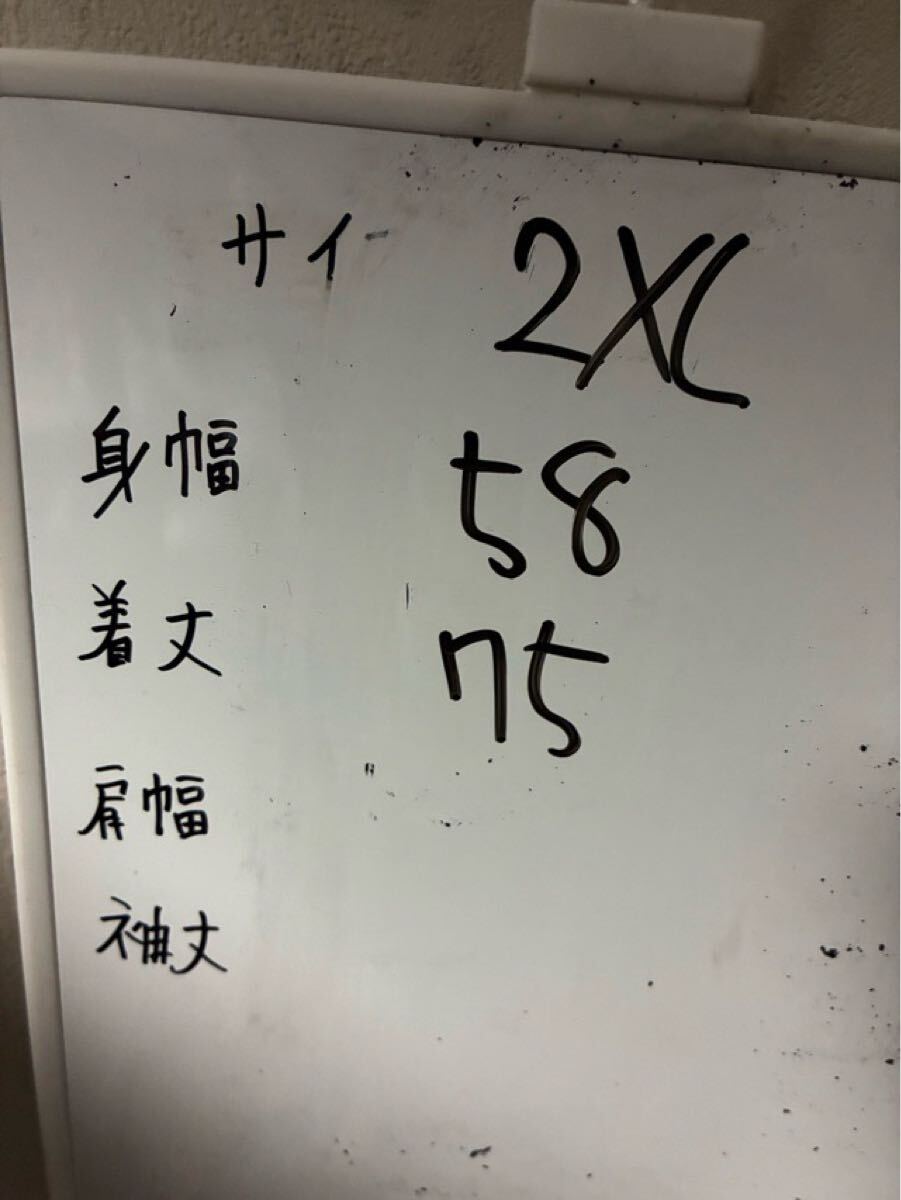 サイ 2XL
身幅 58
着丈 75
肩幅
袖丈